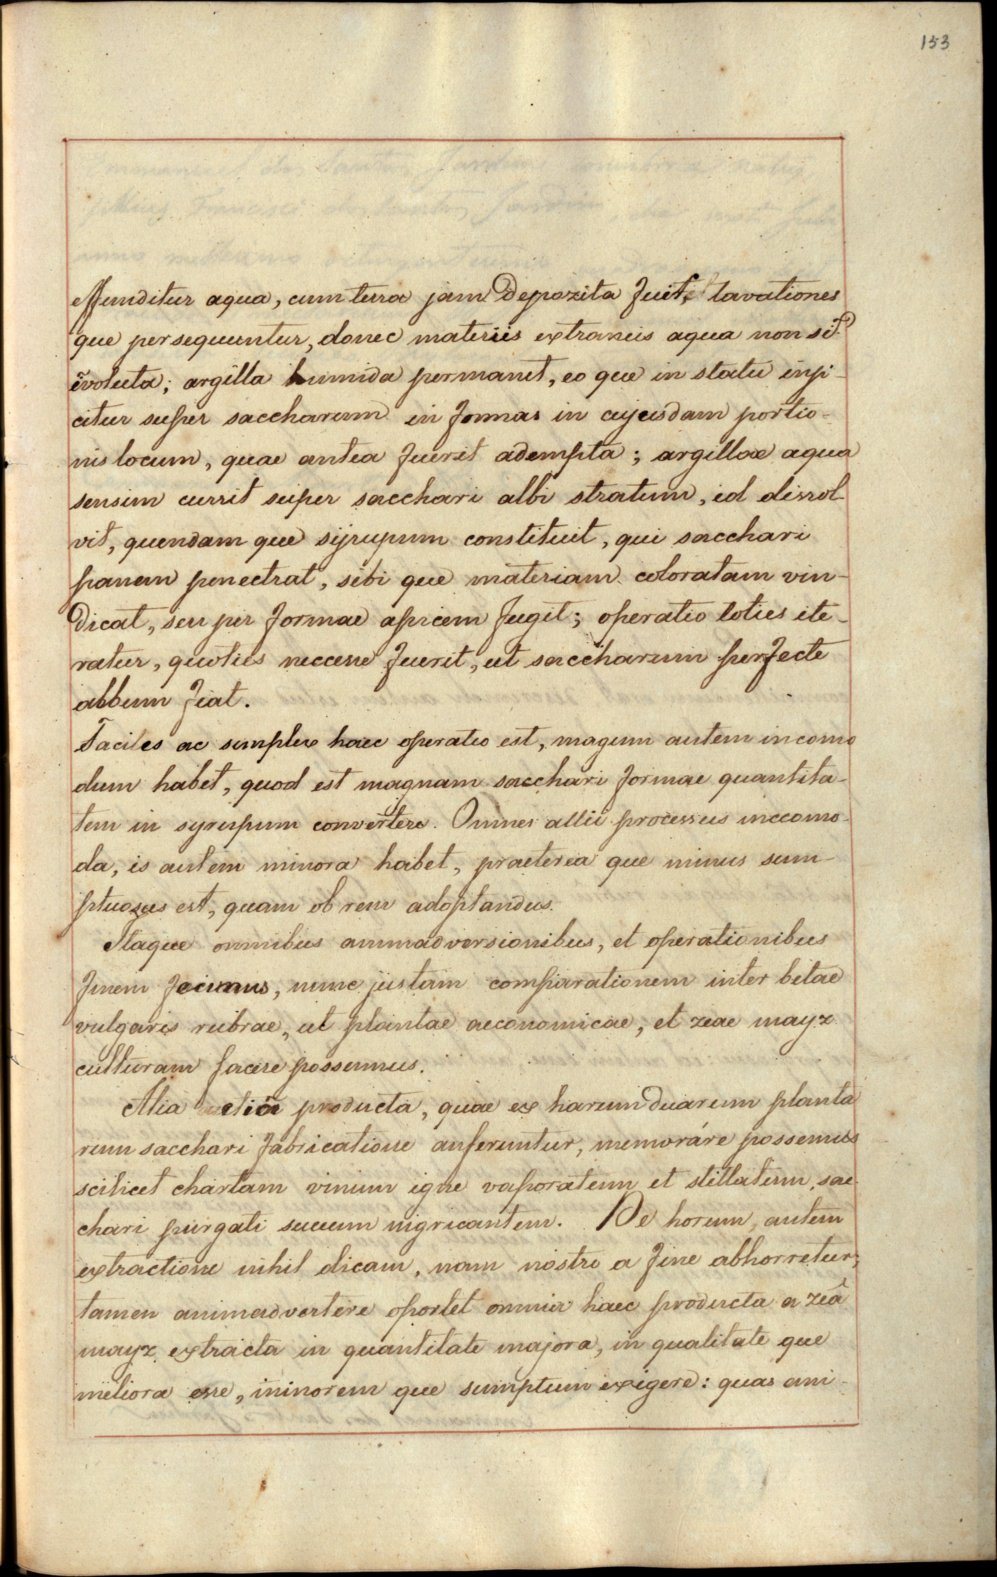 153
effunditur aqua, cum terra jam depozita fuit, lavationes
que persequuntur, donec materiis extraneis aqua non sit
evoluta; argilla humida permanet, eo que in statu inji-
citur super saccharum in formas in cujusdam portio-
nis locum, quae antea fuerit adempta; argillae aqua
sensim currit super sacchari albi stratum, id dissol-
vit, quendam que syrupum constituit, qui sacchari
panem penectrat, sibi que materiam coloratam vin-
dicat, seu per formae apicem fugit; operatio toties ite-
ratur, quoties neccesse fuerit, ut saccharum perfecte
abbum fiat.
Faciles ac simplex haec operatio est, magum autem incomo
dum habet, quod est magnam sacchari formae quantita-
tem in syrupum convertere. Omnes allii processus inccomo-
da, is autem minora habet, praeterea que minus sum-
ptuozus est, quam ob rem adoptandus.
Itaque omnibus ammadversionibus, et operationibus
finem fecimus, nunc justam comparationem inter betae
vulgaris rubrae, ut plantae aeconomicae, et zeae mayz
culturam facere possumus.
Alia etiam producta, quae ex harum duarum planta
rum sacchari fabricatione auferuntur, memoráre possemus
scilicet chartam vinum igne vaporatum et stillatum, sac
chari purgati succum nigricantem. De horum autem
extractione nihil dicam, nam nostro a fine abhorretur;
tamen animadvertere oportet omnia haec producta a zeâ
mayz extracta in quantitate majora, in qualitate que
meliora esse, minorem que sumptum exigere: quas ani-